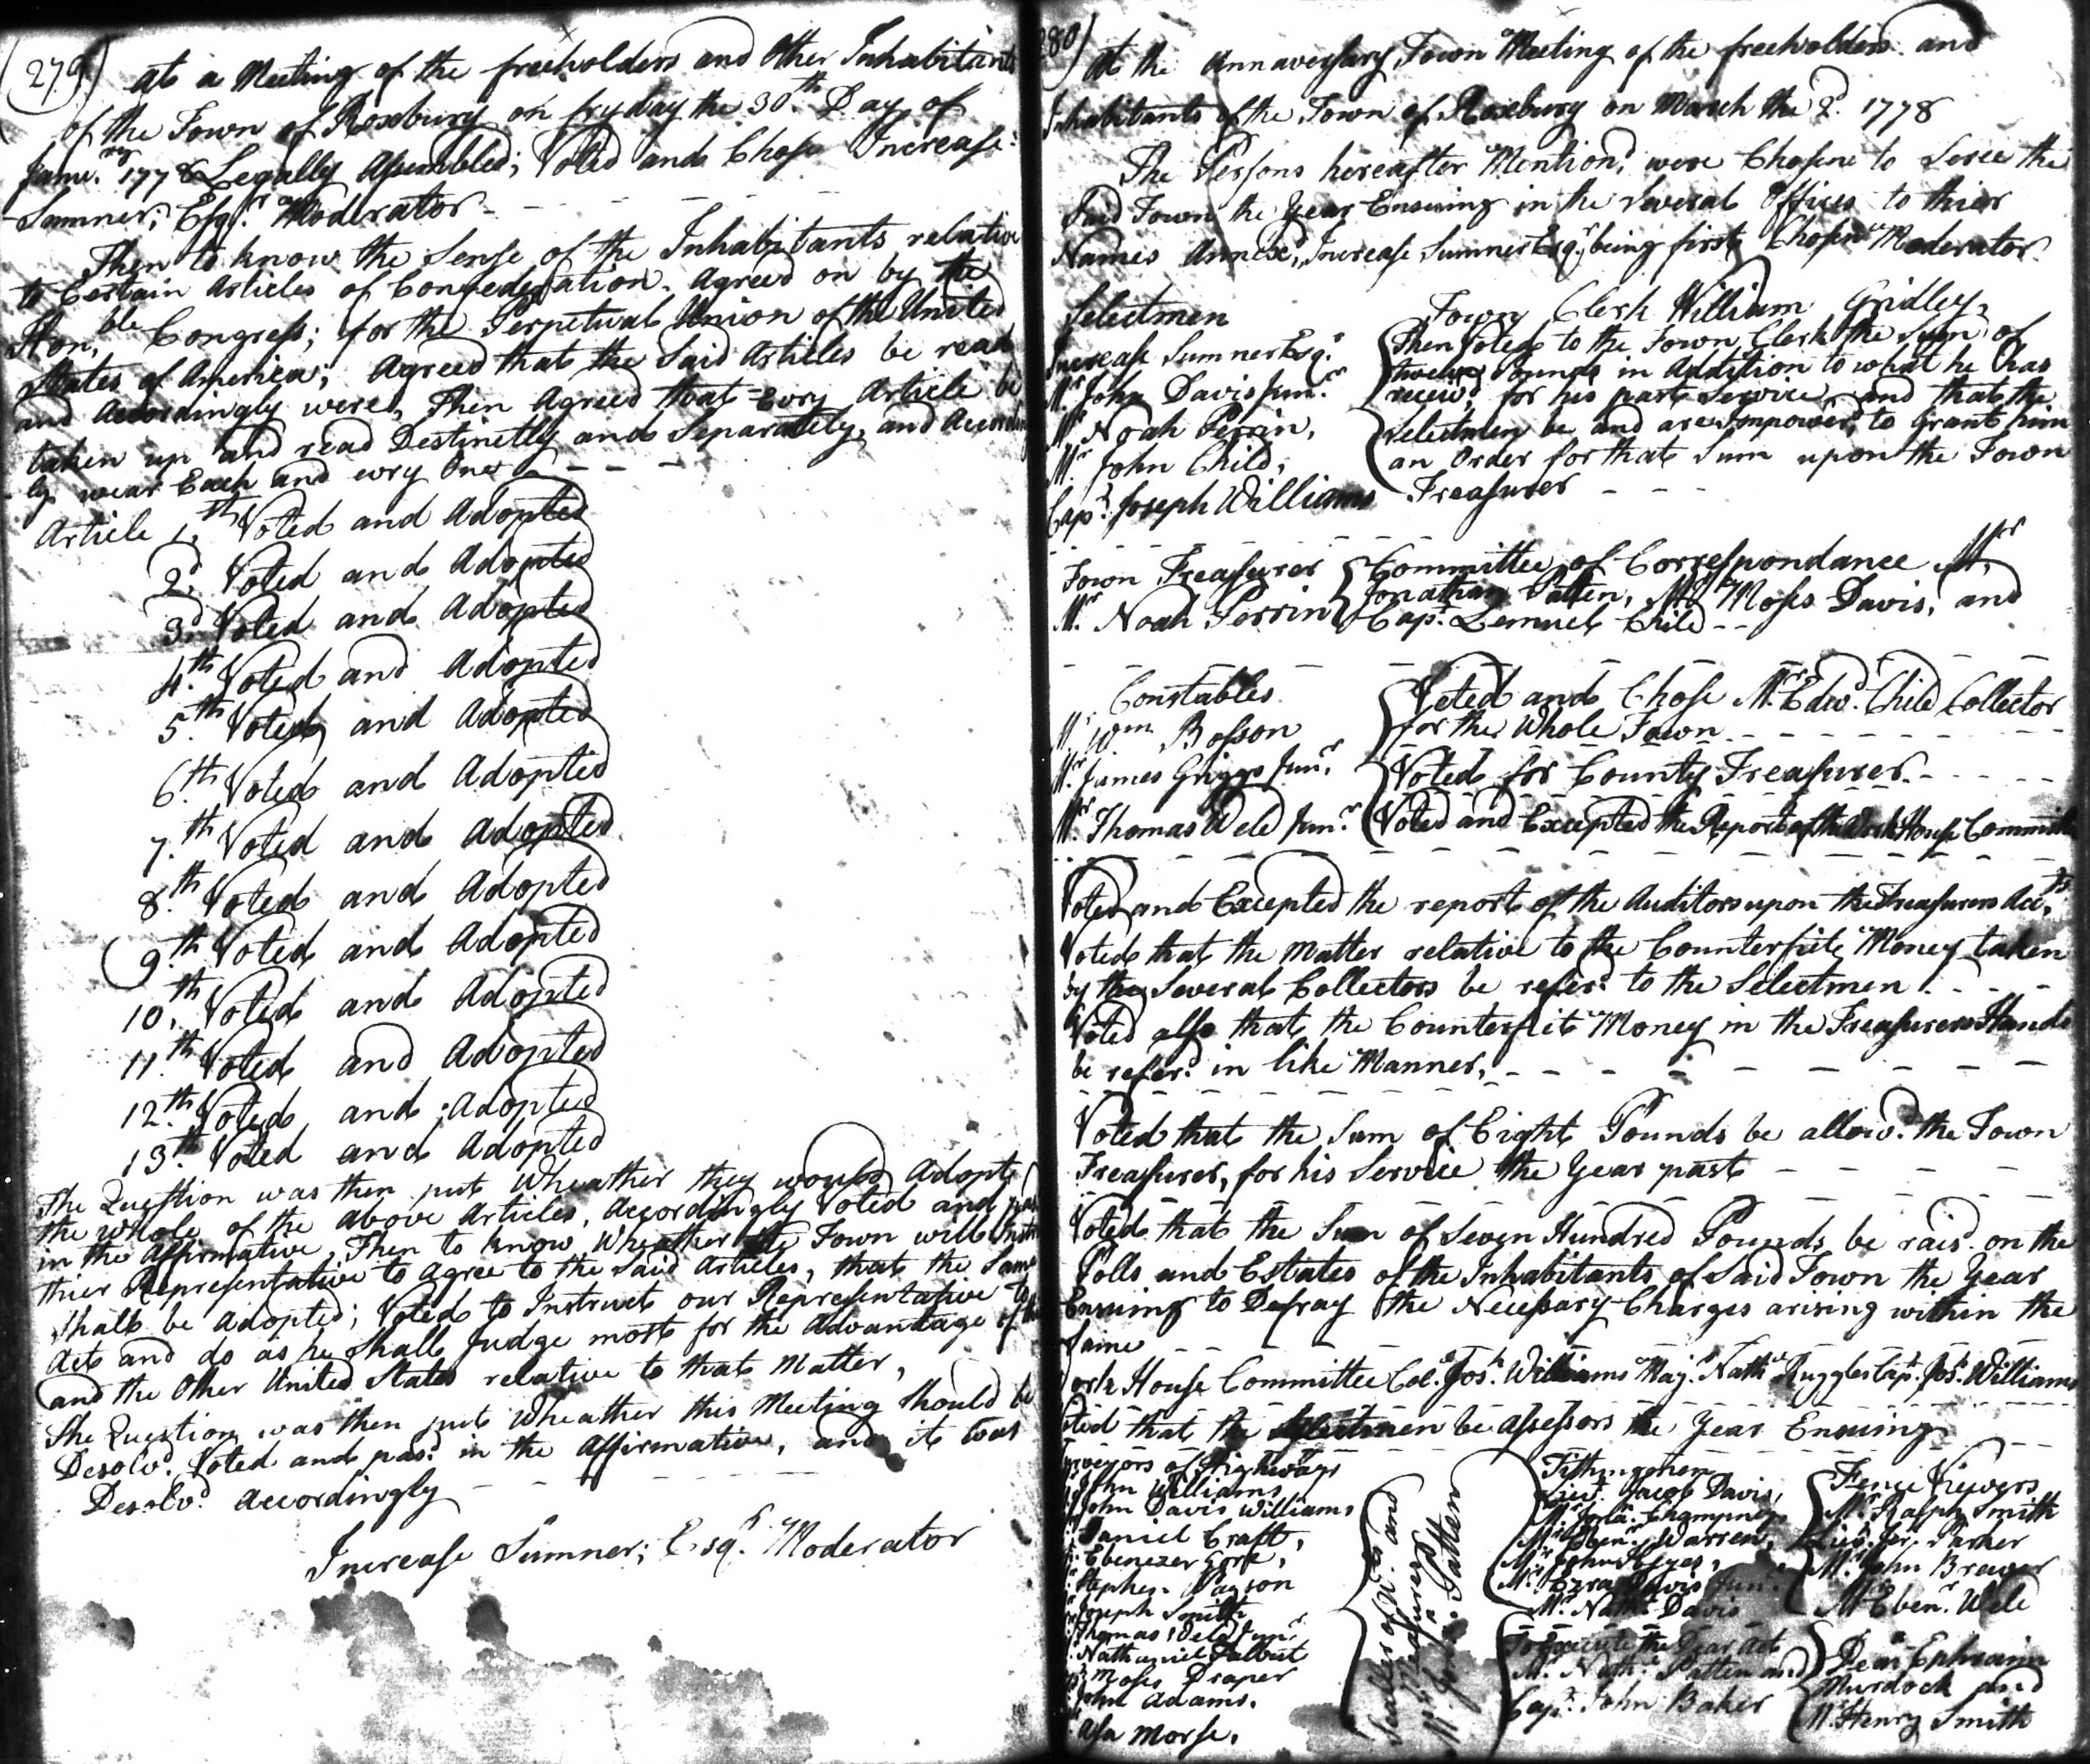 (279)
At a Meeting of the freeholders and Other Inhabitants
of the Town of Roxbury on fryday the 30th Day of
Janu.ry 1778 Legally Assembled; Voted and Chose Increase
Sumner; Esqr. Moderator
Then to know the Sense of the Inhabitants relative
to Certain Articles of Confederation. Agreed on by the
Hon.ble Congress; for the Perpetual Union of the United
States of America; Agreed that the Said Articles be read
and Accordingly were, Then Agreed that Evry Article be
taken up and read Destinctly and Separately, and According
ly wear Each and evry One
Article 1.th Voted and Adopted
2d. Voted and Adopted
3d. Voted and Adopted
4.th Voted and Adopted
5.th Voted and Adopted
6.th Voted and Adopted
7.th Voted and Adopted
8.th Voted and Adopted
9.th Voted and Adopted
10.th Voted and Adopted
11.th Voted and Adopted
12.th Voted and Adopted
13.th Voted and Adopted
The Question was then put Wheather they would Adopt
the whole of the above Articles, Accordingly Voted and
in the Affirmative, Then to know Wheather the Town will
thier Representative to agree to the Said Articles, that the Same
Shall be Adopted; Voted to Instruct our Representative to
Act and do as he Shall Judge most for the Advantage of
and the Other United States relative to that Matter,
The Question was then put Wheather this Meeting Should be
Desolv.d Voted and pas.d in the Affirmative, and it was
Desolv.d Accordingly
Increase Sumner; Esqr. Moderator
280)
At the Annaversary Town Meeting of the freeholders and
Inhabitants of the Town of Roxbury on March the 2d. 1778
The Persons hereafter Mention.d were Chosen to Serve the
Said Town the Year Ensuing in the Several Offices to thier
Names Annexd, Increase Sumner Esqr. being first Chosen Moderator
Selectmen
Increase Sumner Esqr.
Mr. John Davis junr.
Mr. Noah Perrin,
Mr. John Child,
Capt. Joseph Williams
Town Clerk William Gridley,
Then Voted to the Town Clerk the Sum of
twelve Pounds in Addition to what he has
receiv.d for his past Service, and that the
Selectmen be and are Impower.d to Grant him
an Order for that Sum upon the Town
Treasurer
Town Treasurer
Mr. Noah Perrin
Committee of Correspondance Mr.
Jonathan Patten, Mr. Moses Davis, and
Capt. Lemuel Child
Constables
Mr. Wm Bosson
Mr. James Griggs junr.
Mr. Thomas Weld junr.
Voted and Chose Mr. Edwd. Child Collector
for the Whole Town
Voted for County Treasurer
Voted and Excepted the Report of the Work House Committee
Voted and Excepted the report of the Auditors upon the Treasurers Acc.ts
Voted that the Matter relative to the Counterfiit Money taken
by the Several Collectors be refer.d to the Selectmen
Voted also that the Counterfiit Money in the Treasurers Hands
be refer.d in like Manner,
Voted that the Sum of Eight Pounds be allow.d the Town
Treasurer, for his Service the Year past
Voted that the Sum of Seven Hundred Pounds be rais.d on the
Polls and Estates of the Inhabitants of Said Town the Year
Ensuing to Defray the Necessary Charges arising within the
Same
Work House Committee Col. Jos. Williams Maj. Nath. Ruggles Capt. Jos. Williams
Voted that the Selectmen be Assessors the Year Ensuing
Surveyors of Highways
John Williams
John Davis Williams
Daniel Craft,
Ebenezer Gore,
Stephen Payson
Joseph Smith
Thomas Weld junr.
Nathaniel Talbut
Moses Draper
John Adams.
Asa Morse.
Sealers of Wd. and
Mr. Patten
Tithingmen
Lieut. Jacob Davis,
Mr. Champney,
Mr. Eben. Warren,
Mr. John
Mr. Ezra Davis junr.
Mr. Nath. Davis
To Execute the Dear Act
Mr. Nath. Patten and
Capt. John Baker
Fence Viewers
Mr. Ralph Smith
Lieut. Jer. Parker
Mr. John Brewer
Mr. Eben.r Weld
Dean Ephraim
Murdock and
Mr. Henry Smith